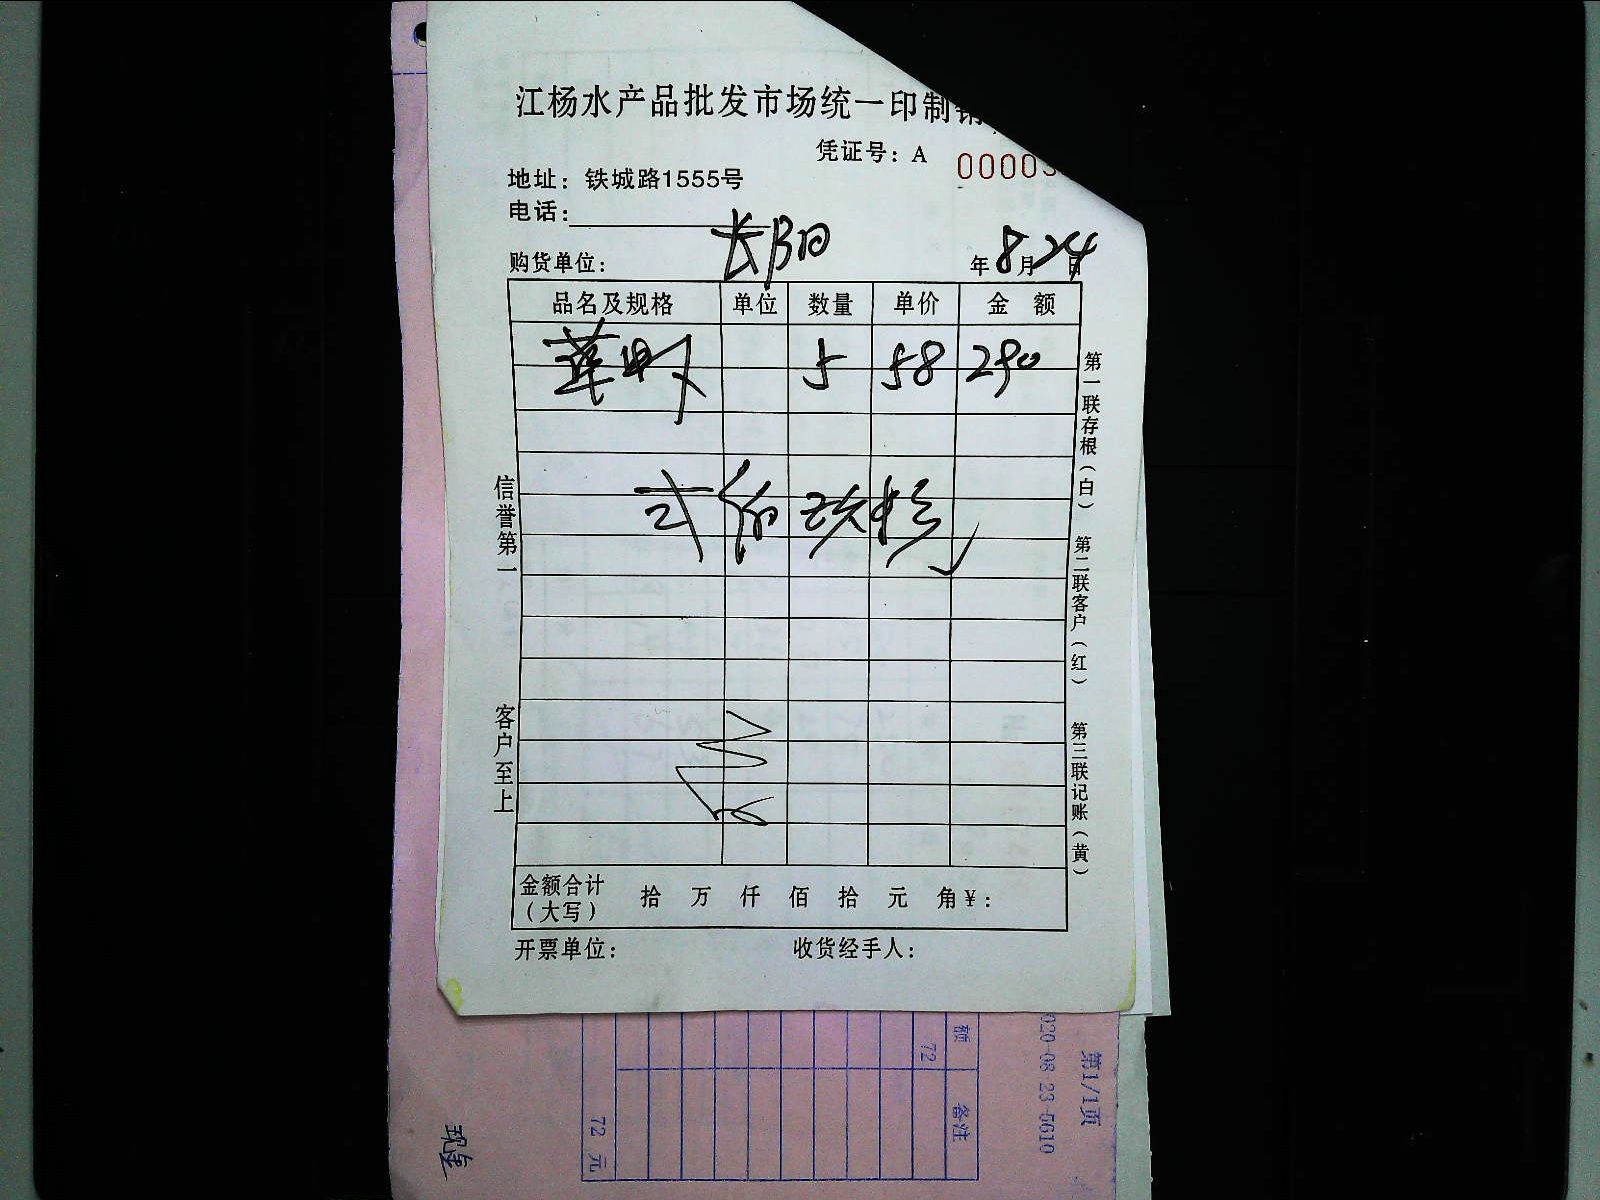 江杨水产品批发市场统一印制销
凭证号：A 00003
地址：铁城路1555号
电话：
购货单位： 长阳 年8月24日
品名及规格 单位 数量 单价 金 额
5 58 290
弍佰玖拾
信誉第一
客户至上
第一联存根（白） 第二联客户（红） 第三联记账（黄）
金额合计（大写） 拾 万 仟 佰 拾 元 角￥：
开票单位： 收货经手人：
额 备注
72
72 元
020-08 23-5610
第1/1页
现金